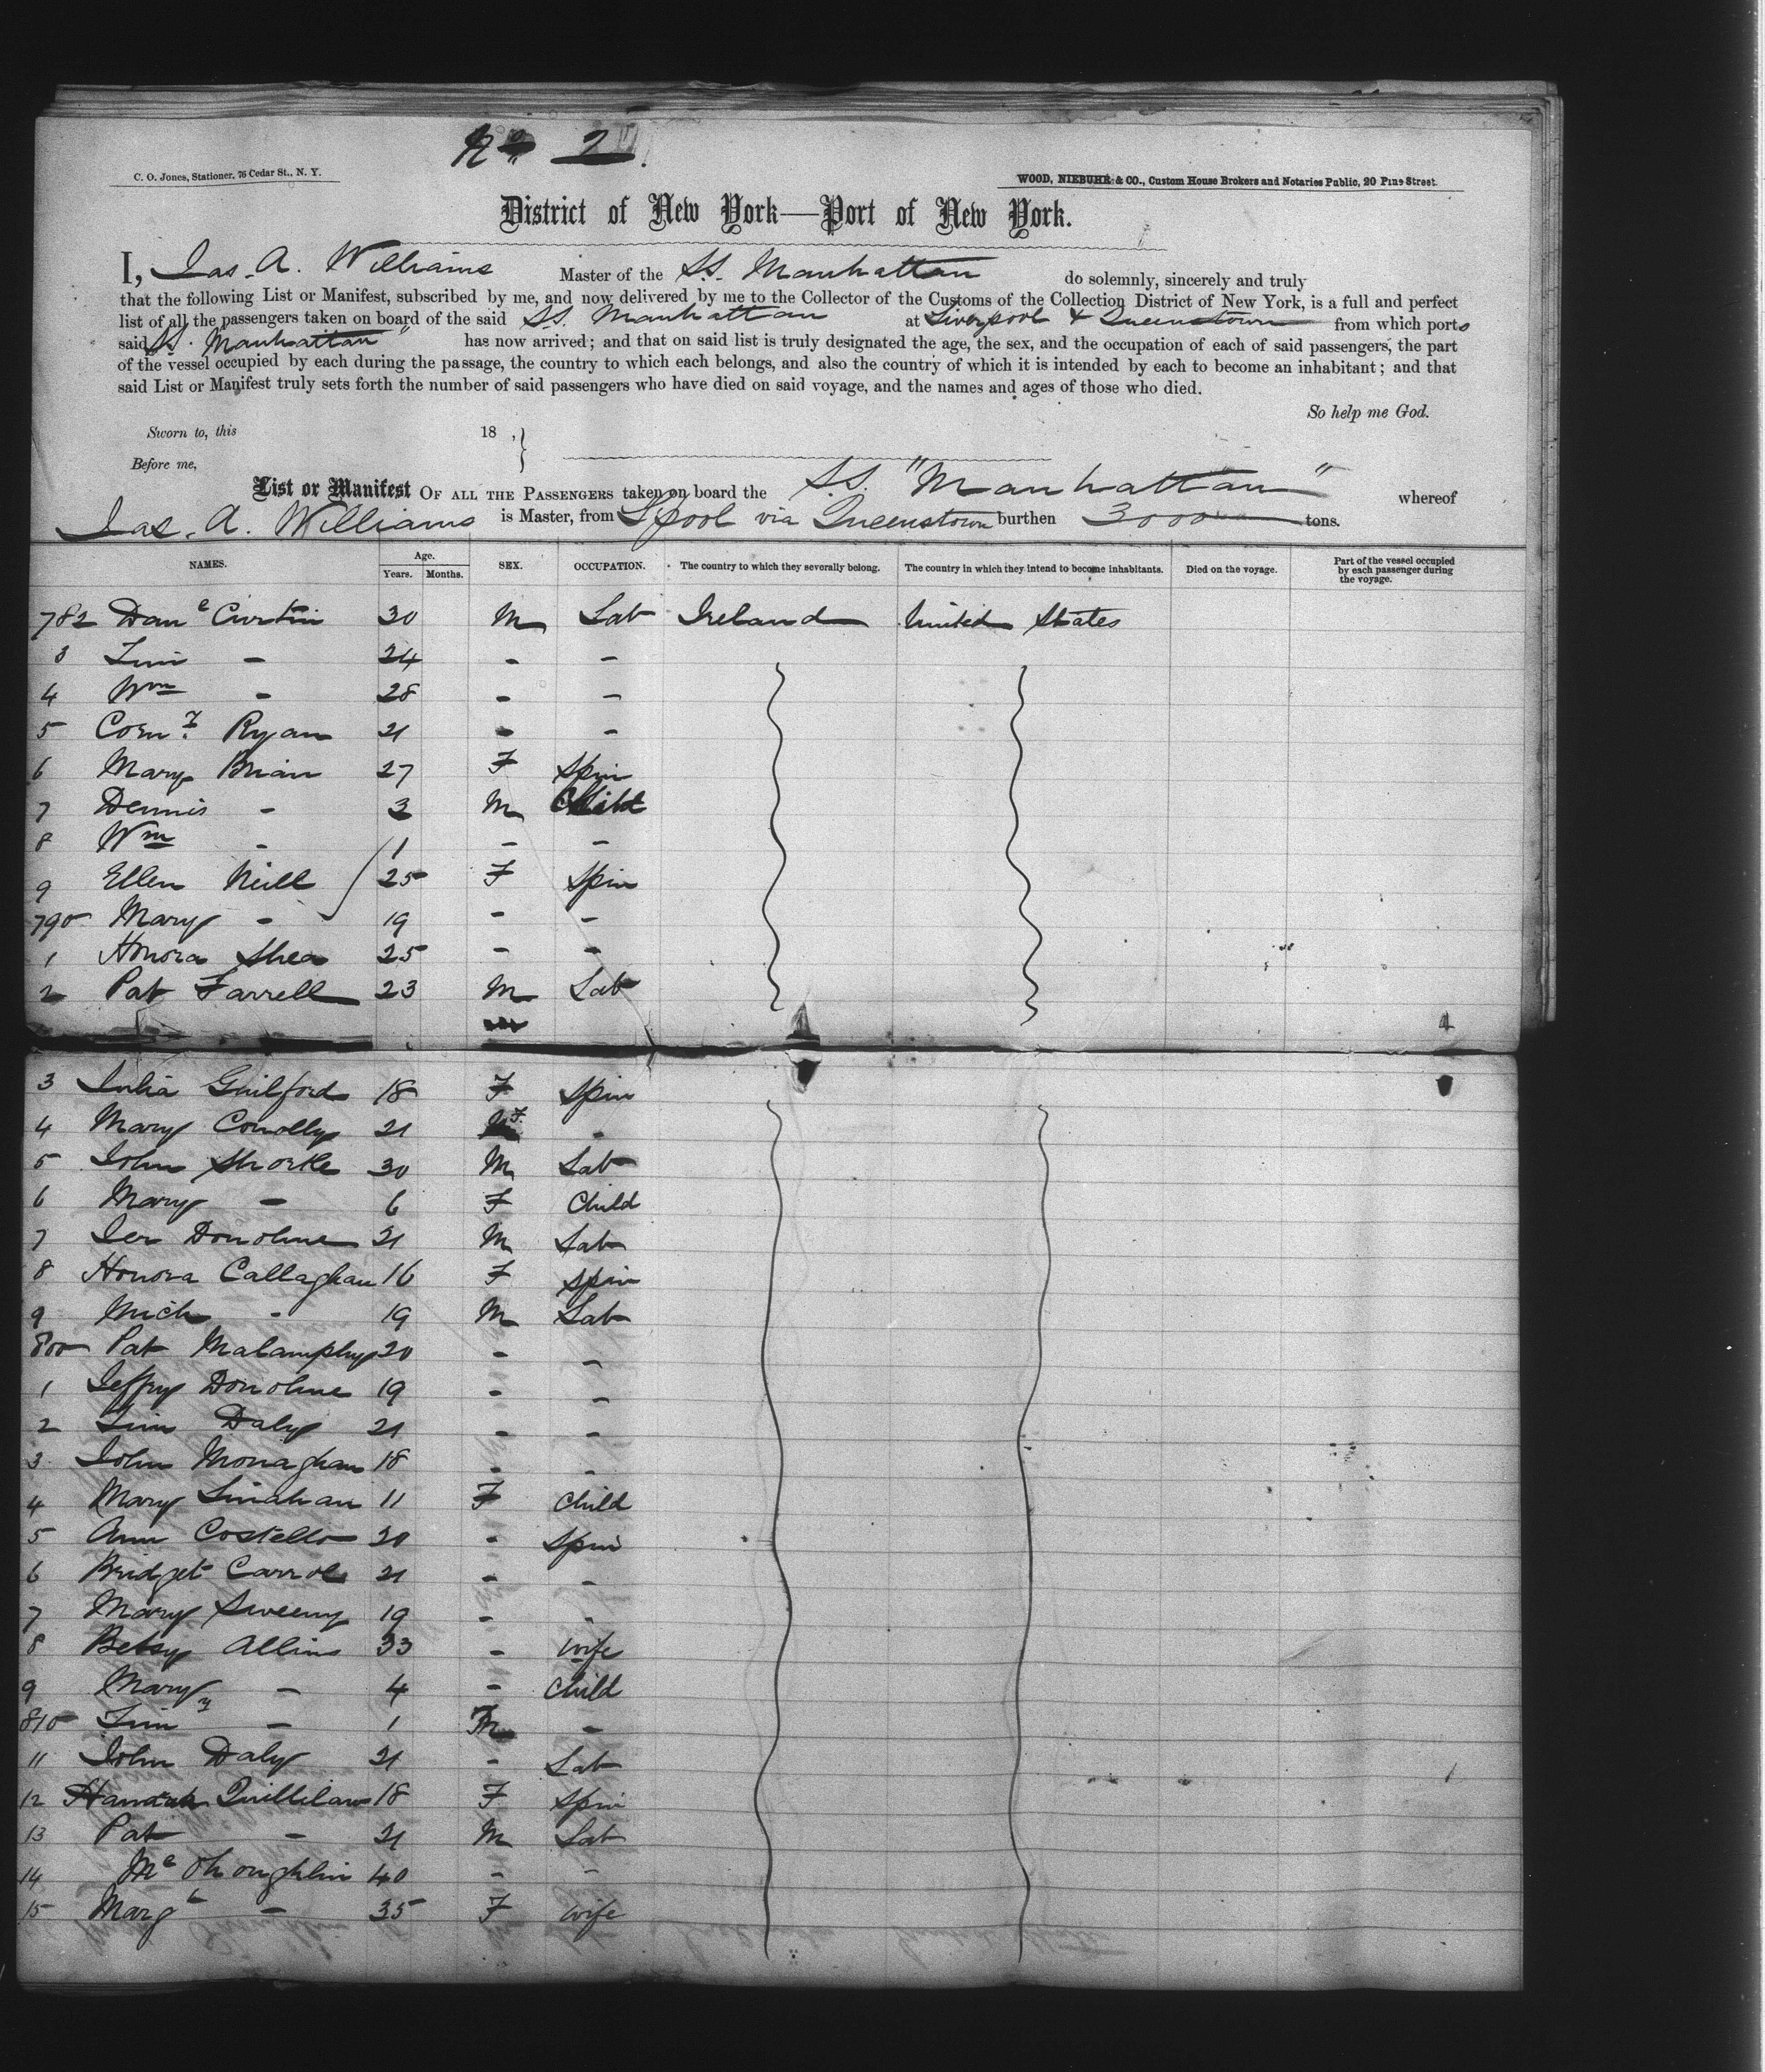 No 2.
C. O. Jones, Stationer, 76 Cedar St., N. Y.
WOOD, NIEBUHR & CO., Custom House Brokers and Notaries Public, 20 Pine Street.
District of New York—Port of New York.
I, Jas. A. Williams Master of the S.S. Manhattan do solemnly, sincerely and truly
that the following List or Manifest, subscribed by me, and now delivered by me to the Collector of the Customs of the Collection District of New York, is a full and perfect
list of all the passengers taken on board of the said SS. Manhattan at Liverpool & Queenstown from which ports
said SS. Manhattan has now arrived; and that on said list is truly designated the age, the sex, and the occupation of each of said passengers, the part
of the vessel occupied by each during the passage, the country to which each belongs, and also the country of which it is intended by each to become an inhabitant; and that
said List or Manifest truly sets forth the number of said passengers who have died on said voyage, and the names and ages of those who died.
So help me God.
Sworn to, this 18 ,
Before me,
List or Manifest OF ALL THE PASSENGERS taken on board the S.S. "Manhattan" whereof
Jas. A. Williams is Master, from Lpool via Queenstown burthen 3000 tons.
NAMES. Age. Years. Months. SEX. OCCUPATION. The country to which they severally belong. The country in which they intend to become inhabitants. Died on the voyage. Part of the vessel occupied by each passenger during the voyage.
782 Danl Curtin 30 M Lab Ireland United States
3 Tim - 24 - -
4 Wm - 28 - -
5 Corns. Ryan 21 - -
6 Mary Brian 27 F Spin
7 Dennis - 3 M Child
8 Wm - 1 - -
9 Ellen Neill 25 F Spin
790 Mary - 19 - -
1 Honora Shea 25 - -
2 Pat Farrell 23 M Lab
3 Julia Guilford 18 F Spin
4 Mary Conolly 21 F -
5 John 30 M Lab
6 Mary - 6 F Child
7 Jer Donohue 21 M Lab
8 Honora Callaghan 16 F Spin
9 Mich - 19 M Lab
800 Pat Malamphy 20 - -
1 Jeffry Donohue 19 - -
2 Tim Daly 21 - -
3 John Monaghan 18 - -
4 Mary Linahan 11 F Child
5 Ann Costello 20 - Spin
6 Bridget Carrol 21 - -
7 Mary Sweeny 19 - -
8 Betsy Allins 33 - Wife
9 Mary - 4 - Child
810 Timy - 1 M -
11 John Daly 21 - Lab
12 Hannah Quillilan 18 F Spin
13 Pat - 21 M Lab
14 Ml 40 - -
15 Margt - 35 F Wife